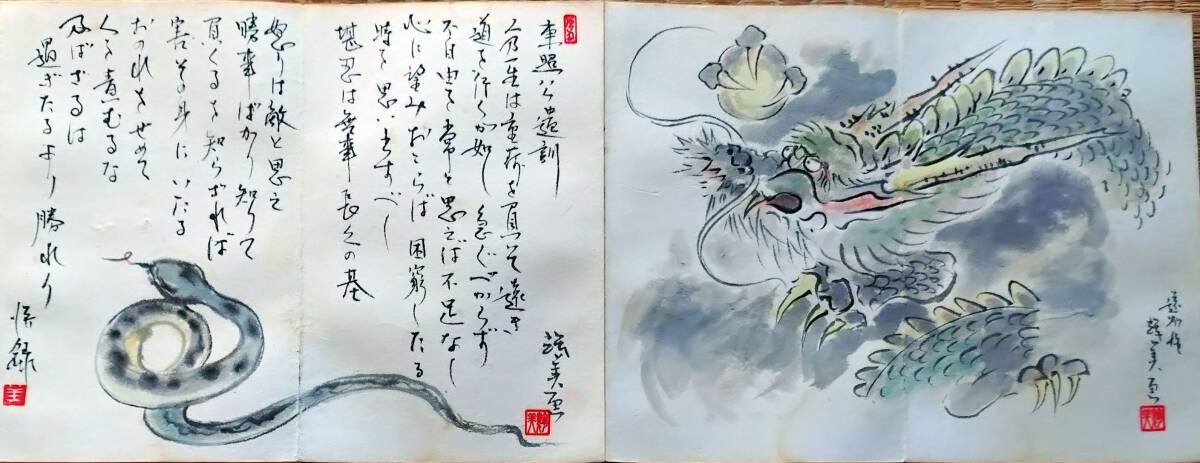 東照公遺訓
人の一生は重荷を負いて遠き
道を行くが如し 急ぐべからず
不自由を常と思えば不足なし
心に望みおこらば困窮したる
時を思い出すべし
堪忍は無事長久の基
怒りは敵と思え
勝事ばかり知りて
負くるを知らざれば
害その身にいたる
おのれをせめて
人を責むるな
及ばざるは
過ぎたるより勝れり